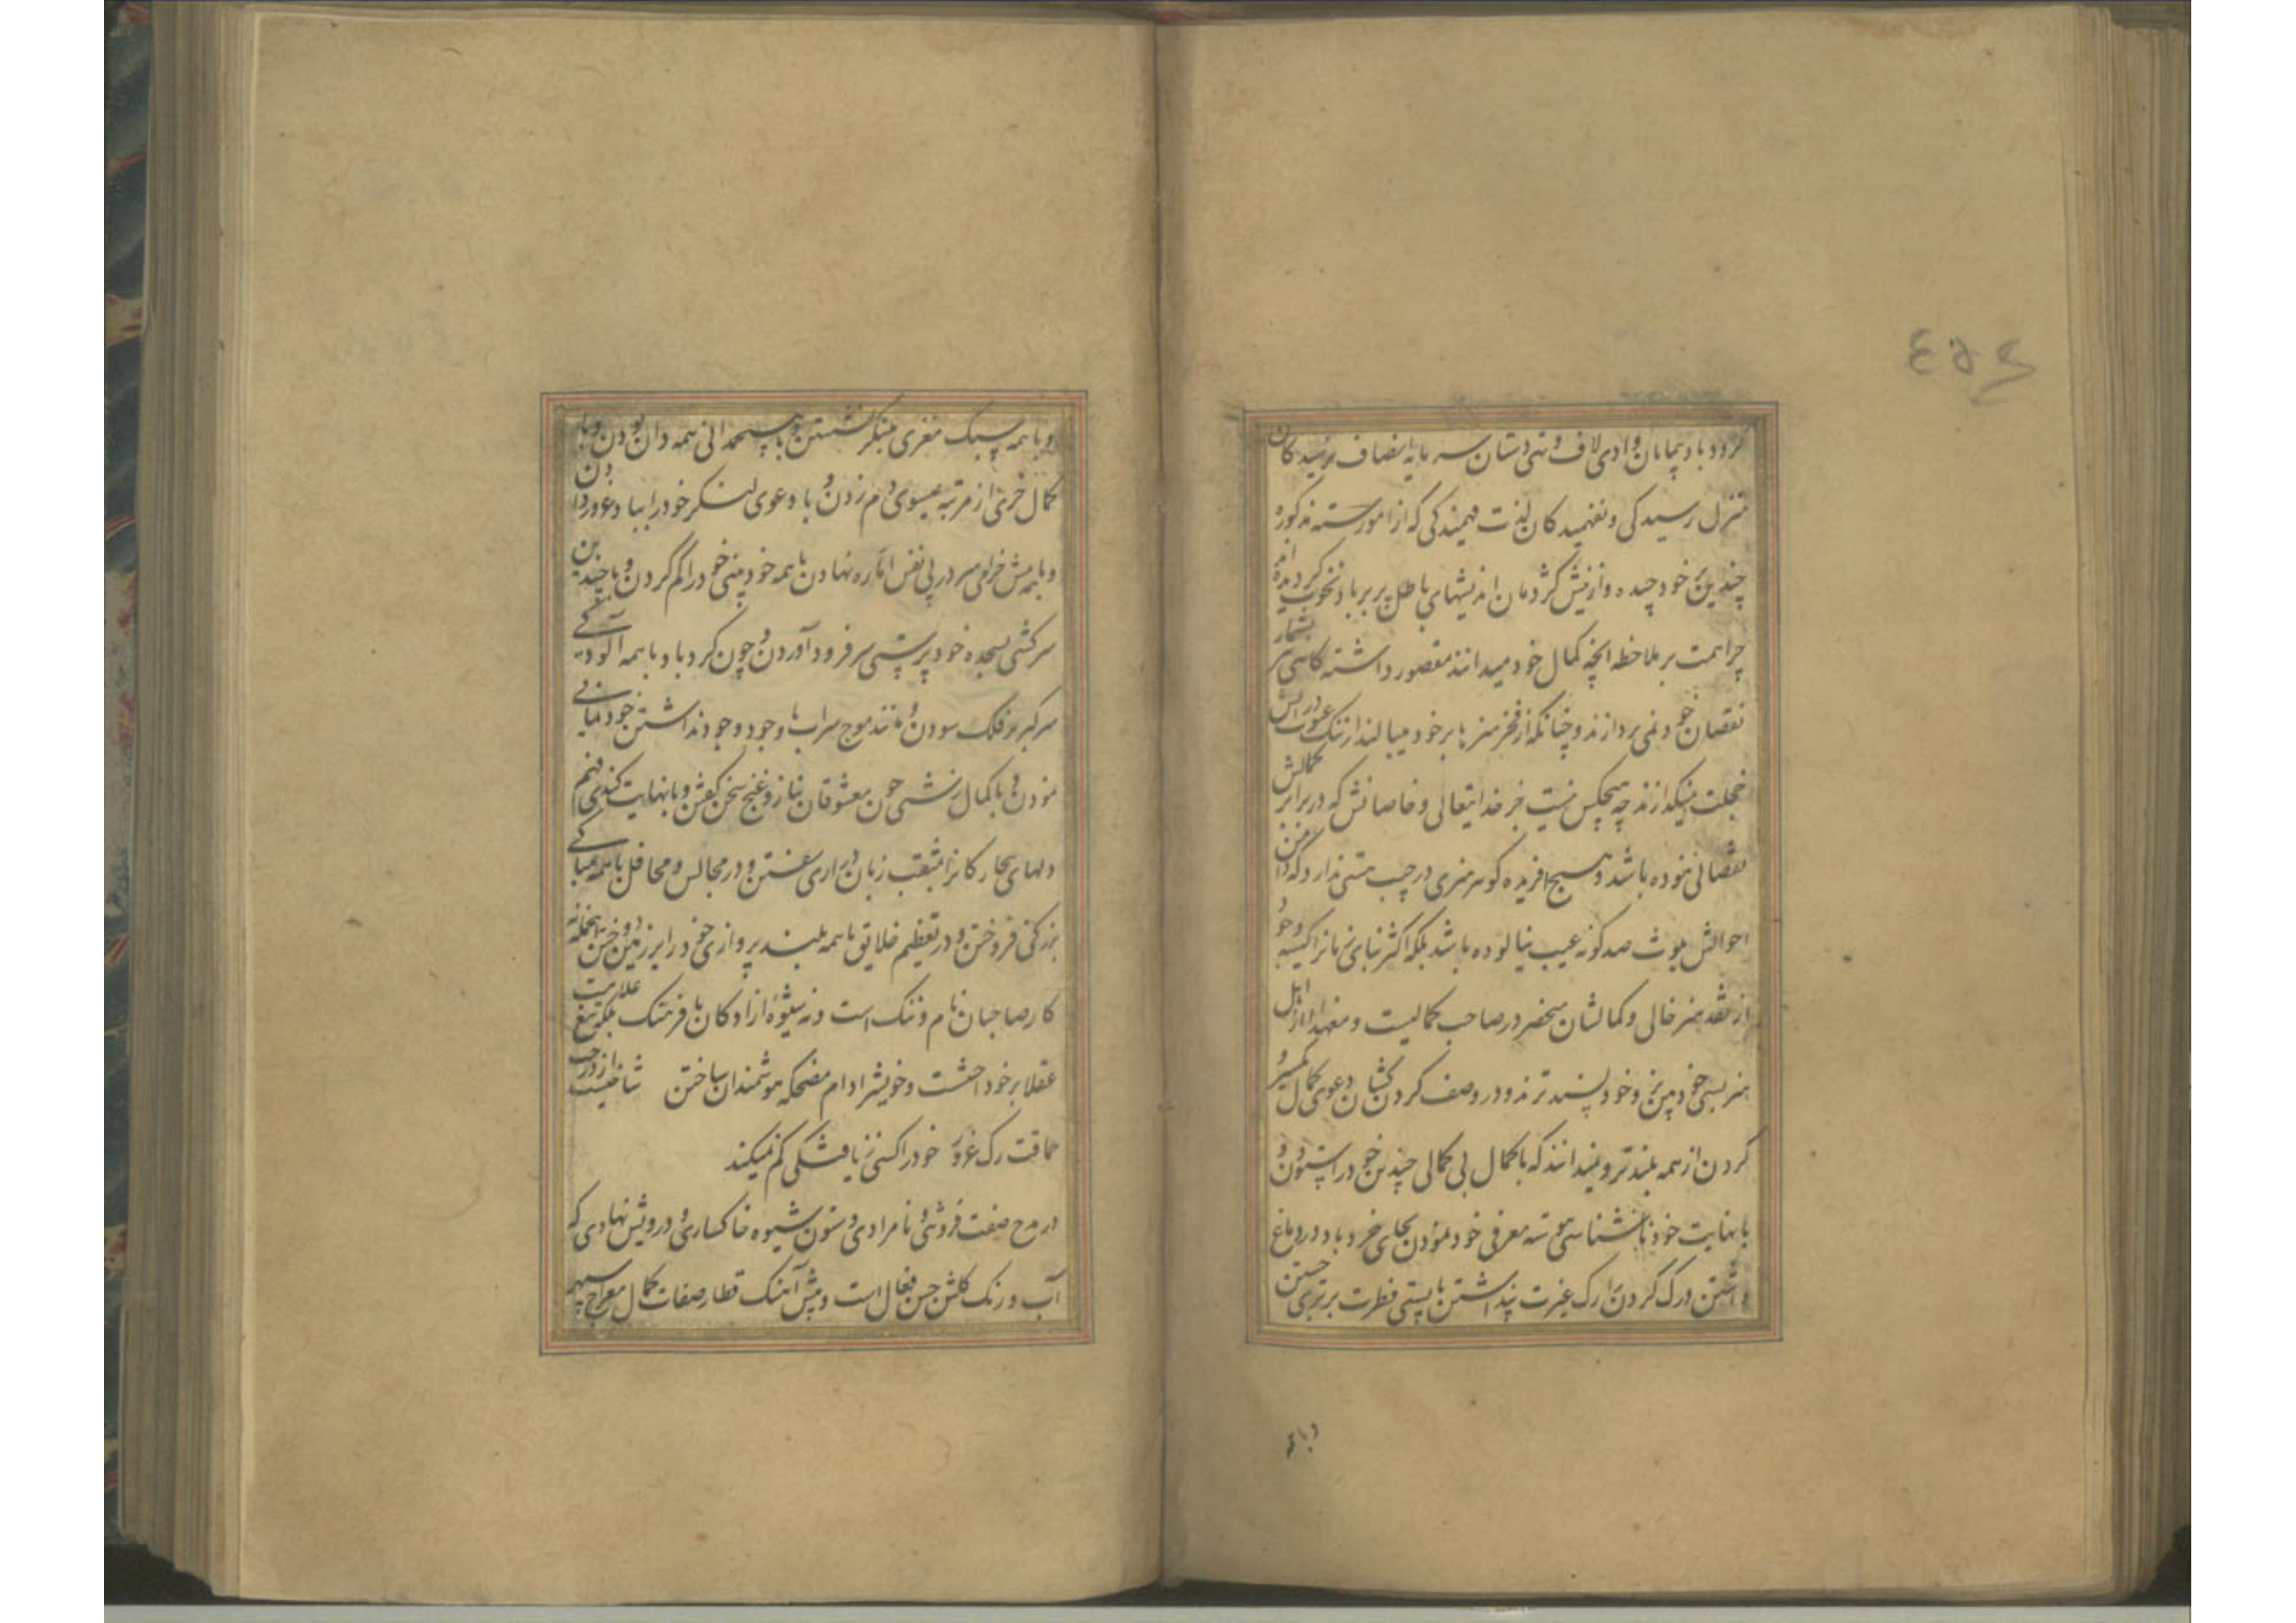 کرد و باد پیمایان وادی لاف و تهی دستان سرمایه انصاف نرسیدکان
منزل رسیدکی و نفهمیدکان لذت فهمیدکی که از امور مذکوره
چندین بر خود چیده و از نیش کژدمان اندیشهای باطل پر بر باد نخوت کردیده اند
چرا همت بر ملاحظه آنچه کمال خود میدانند مقصور داشته کاسی بشمار
نقصان خود نمی پردازند و چنانکه از فخر هنرها بر خود میبالند از ننک عیوب در آتش
خجلت نمیکدازند چه هیچکس نیست جز خدایتعالی و خاصانش که در برابر کمالش
نقصانی نبوده باشد و هیچ افریده کوهر هنری در جیب هستی ندارد که دامن
احوالش بلوث صد کونه عیب نیالوده باشد بلکه اکثر ابنای زمانرا کیسه وجود
از نقد هنر خالی و کمالشان منحصر در صاحب کمالیست و معهذا از اهل
هنر بسی خودبین تر و خودپسندترند و در وصف کردن کشان دعوی کمال و تمیز
کردن از همه بلندتر و نمیدانند که با کمال بی کمالی چندین خود را ستودن و
با نهایت خودناشناسی معرفی خود نمودن بجای خرد باد در دماغ
داشتن و رک کردن را رک غیرت پنداشتن با پستی فطرت برتری جستن
و با همه
و با همه سبک مغزی سنکر نشستن و با هیچمدانی همه دان بودن و با
کمال خری از مرتبه عیسوی دم زدن و با دعوی لشکر خود را بباد غرور دادن
و با همه پیش خرامی سر در پی نفس اماره نهادن با همه خودبینی خود را کم کردن و با چندین
سرکشی بسجده خودپرستی سر فرود آوردن و چون کردباد با همه آلودکی
سر کبر بر فلک سودن و مانند موج سراب با وجود وجود نداشتن خودنمایی
نمودن و با کمال زشتی چون معشوقان بناز و غنج سخن کفتن و با نهایت کندی فهم
دلهای بیچارکانرا بمثقب زبان درازی سفتن و در مجالس و محافل با همه
بزرکی فروختن و در تعظیم خلایق با همه بلند پروازی خود را بر زمین دوختن اینجمله نه
کار صاحبان نام و ننک است و نه شیوه ازادکان با فرهنک بلکه تیغ ملامت
عقلا بر خود است و خویشرا دام مضحکه هوشمندان ساختن شاخیست از درخت
حماقت رک غرور خود را کسی ز یافتکی کم نمیکند
در مدح صفت فروتنی و نامرادی و ستون شیوه خاکساری و درویش نهادی که
آب و رنک کلشن حسن فعال است و پیش آهنک قطار صفات کمال معراج سپهر